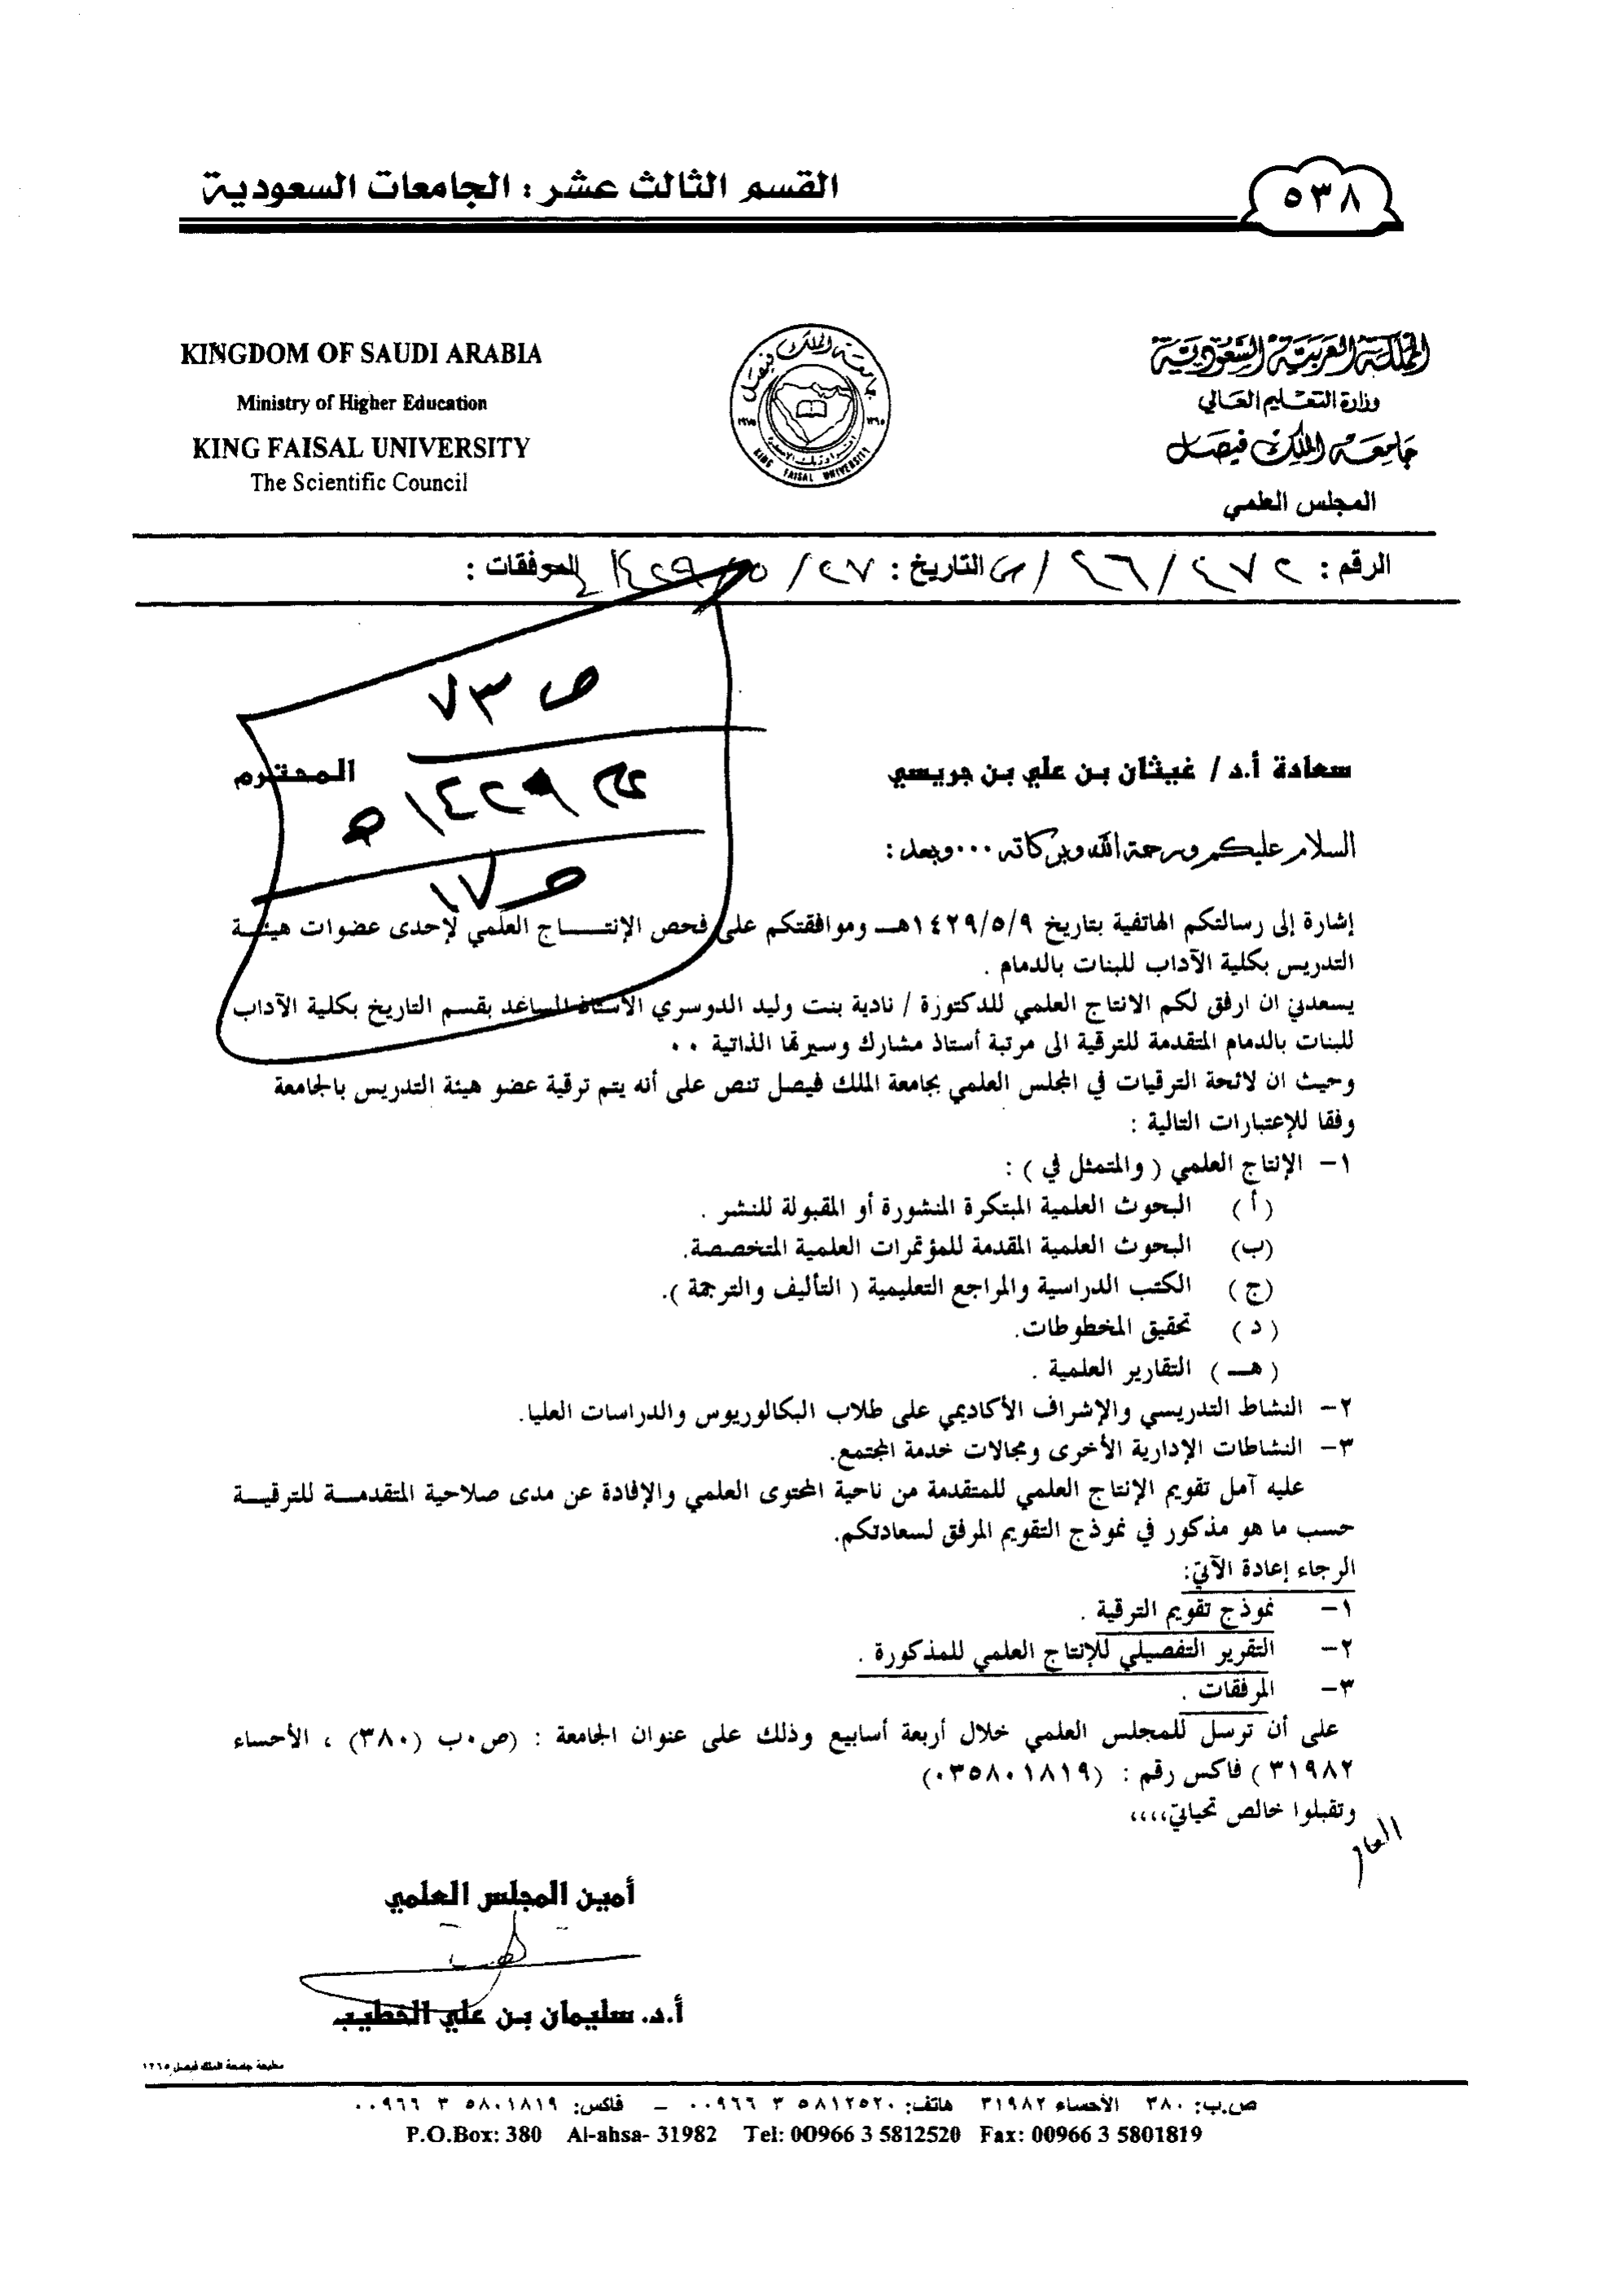 القسم الثالث عشر : الجامعات السعودية
٥٣٨
KINGDOM OF SAUDI ARABIA
Ministry of Higher Education
KING FAISAL UNIVERSITY
The Scientific Council
جامعة الملك فيصل
KING FAISAL UNIVERSITY
المملكة العربية السعودية
وزارة التعليم العالي
جامعة الملك فيصل
المجلس العلمي
الرقم : التاريخ : ٢٧ / ٥ / ١٤٢٩ المرفقات :
ص ٧٣
عام ١٤٢٩ هـ
ص ١٧
سعادة أ.د / غيثان بن علي بن جريسي المحترم
السلام عليكم ورحمة الله وبركاته ... وبعد :
إشارة إلى رسالتكم الهاتفية بتاريخ ١٤٢٩/٥/٩هـ وموافقتكم على فحص الإنتاج العلمي لإحدى عضوات هيئة
التدريس بكلية الآداب للبنات بالدمام .
يسعدني ان ارفق لكم الانتاج العلمي للدكتوزة / نادية بنت وليد الدوسري الأستاذ المساعد بقسم التاريخ بكلية الآداب
للبنات بالدمام المتقدمة للترقية الى مرتبة أستاذ مشارك وسيرتها الذاتية ..
وحيث ان لائحة الترقيات في المجلس العلمي بجامعة الملك فيصل تنص على أنه يتم ترقية عضو هيئة التدريس بالجامعة
وفقا للإعتبارات التالية :
١- الإنتاج العلمي ( والمتمثل في ) :
( أ ) البحوث العلمية المبتكرة المنشورة أو المقبولة للنشر .
(ب) البحوث العلمية المقدمة للمؤتمرات العلمية المتخصصة.
(ج ) الكتب الدراسية والمراجع التعليمية ( التأليف والترجمة ).
( د ) تحقيق المخطوطات.
( هـ ) التقارير العلمية .
٢- النشاط التدريسي والإشراف الأكاديمي على طلاب البكالوريوس والدراسات العليا.
٣- النشاطات الإدارية الأخرى ومجالات خدمة المجتمع.
عليه آمل تقويم الإنتاج العلمي للمتقدمة من ناحية المحتوى العلمي والإفادة عن مدى صلاحية المتقدمة للترقية
حسب ما هو مذكور في نموذج التقويم المرفق لسعادتكم.
الرجاء إعادة الآتي:
١- نموذج تقويم الترقية .
٢- التقرير التفصيلي للإنتاج العلمي للمذكورة .
٣- المرفقات .
على أن ترسل للمجلس العلمي خلال أربعة أسابيع وذلك على عنوان الجامعة : (ص.ب (٣٨٠) ، الأحساء
٣١٩٨٢ ) فاكس رقم : (٠٣٥٨٠١٨١٩)
وتقبلوا خالص تحياتي،،،،
أمين المجلس العلمي
أ.د. سليمان بن علي الخطيب
مطبعة جامعة الملك فيصل ١٢٦٥
ص.ب: ٣٨٠ الأحساء ٣١٩٨٢ هاتف: ٥٨١٢٥٢٠ ٣ ٠٠٩٦٦ – فاكس: ٥٨٠١٨١٩ ٣ ٠٠٩٦٦
P.O.Box: 380 Al-ahsa- 31982 Tel: 00966 3 5812520 Fax: 00966 3 5801819